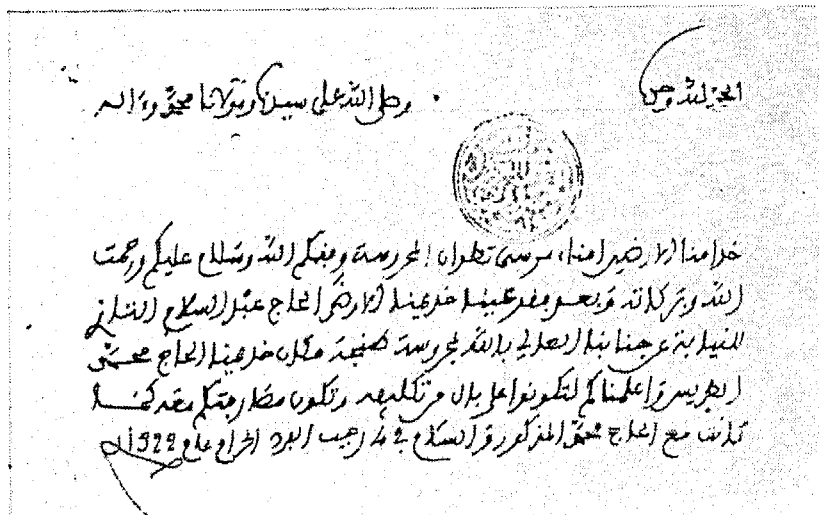 الحمد لله وحده
وصلى الله على سيدنا ومولانا محمد وءاله
خدامنا الارضين امناء مرسى تطوان المحروسة وفقكم الله وسلام عليكم ورحمت
الله وبركاته وبعد فقد عينا خديمنا الارضى الحاج عبد السلام التازي
للنيابة عن جنابنا العالي بالله بمحروسة طنجة مكان خديمنا الحاج محمد
الطريس واعلمناكم لتكونوا على بال من تكليفه وتكون مخابرتكم معه كما
كانت مع الحاج محمد المذكور والسلام في 4 رجب الفرد الحرام عام 1322